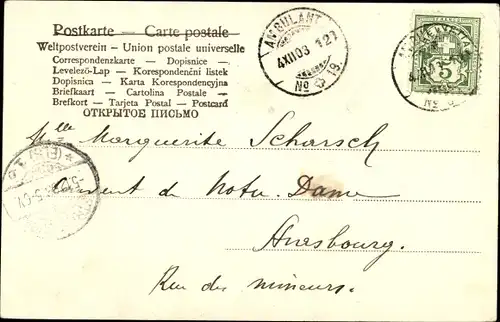 Postkarte — Carte postale
Weltpostverein - Union postale universelle
Correspondenzkarte - Dopisnice -
Levelező-Lap - Korespondenční listek
Dopisnica - Karta Korespondencyjna
Briefkaart - Cartolina Postale -
Brefkort - Tarjeta Postal - Postcard
ОТКРЫТОЕ ПИСЬМО
AMBULANT
4XII03 127
No 19.
5
Mlle Marguerite Scharsch
Couvent de Notre-Dame
Strasbourg.
Rue des mineurs.